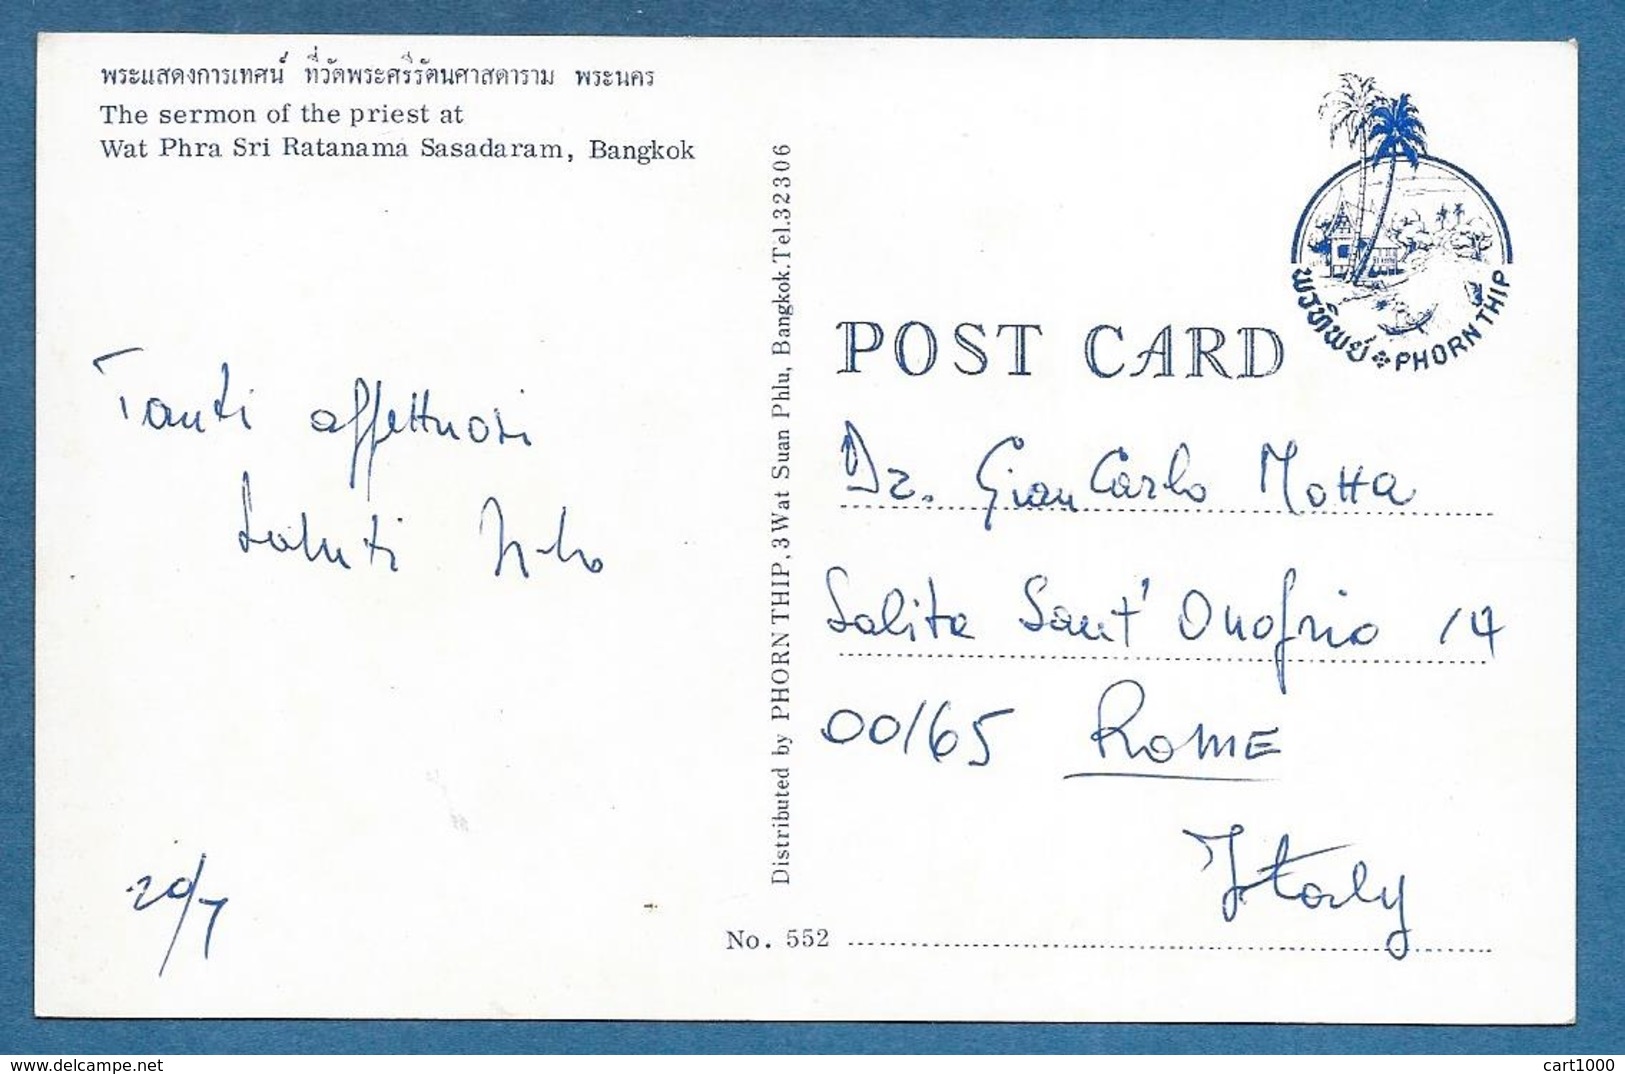 พระแสดงการเทศน์ ที่วัดพระศรีรัตนศาสดาราม พระนคร
The sermon of the priest at
Wat Phra Sri Ratanama Sasadaram, Bangkok
Tanti affettuosi
Saluti
20/7
Distributed by PHORN THIP, 3 Wat Suan Phlu, Bangkok. Tel. 32306
No. 552
พรทิพย์ PHORN THIP
POST CARD
Dr. GianCarlo Motta
Salita Sant' Onofrio 14
00165 ROME
Italy
delcampe.net
cart1000